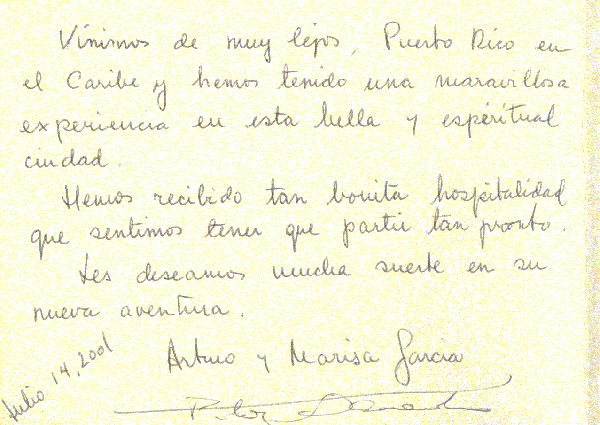 Vinimos de muy lejos, Puerto Rico en
el Caribe y hemos tenido una maravillosa
experiencia en esta bella y espiritual
ciudad.
Hemos recibido tan bonita hospitalidad
que sentimos tener que partir tan pronto.
Les deseamos mucha suerte en su
nueva aventura.
Arturo y Marisa Garcia
Julio 14, 2001